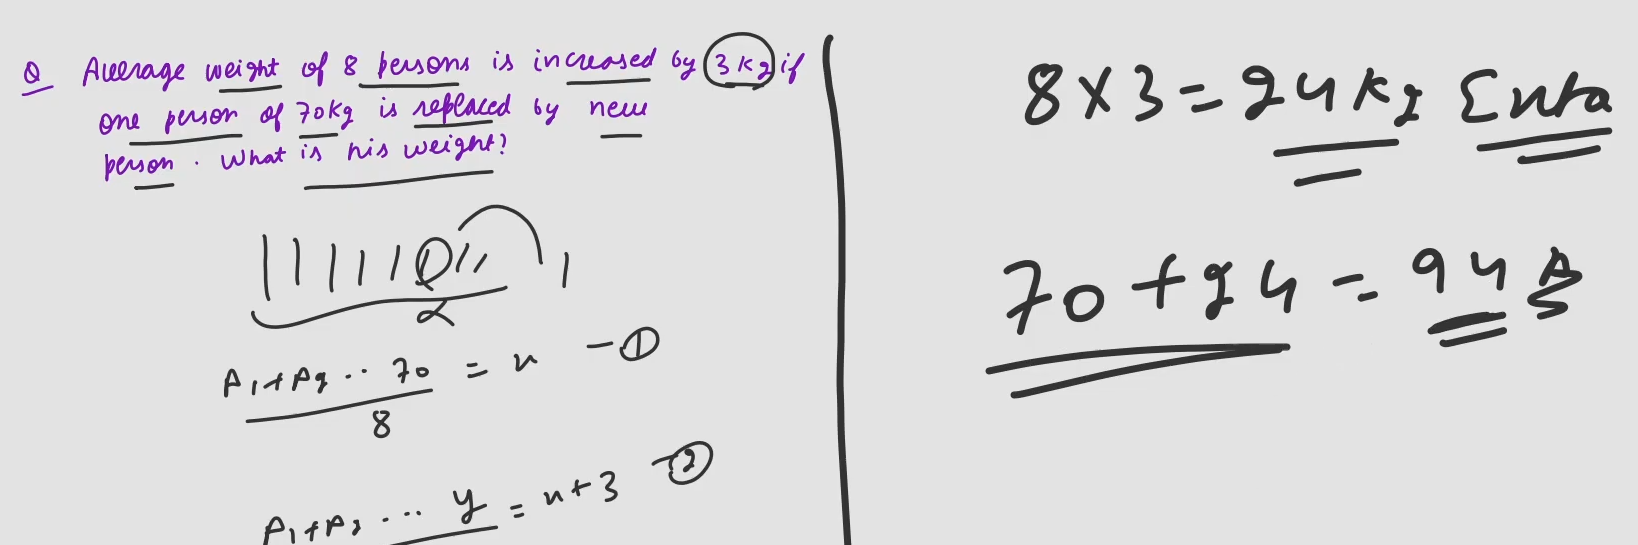 Q Average weight of 8 persons is increased by 3 kg if
one person of 70kg is replaced by new
person. What is his weight?
P1+P2 .. 70 = x - 1
8
P1+P2 ... y = x+3 - 2
8×3=24kg Extra
70+24=94 A